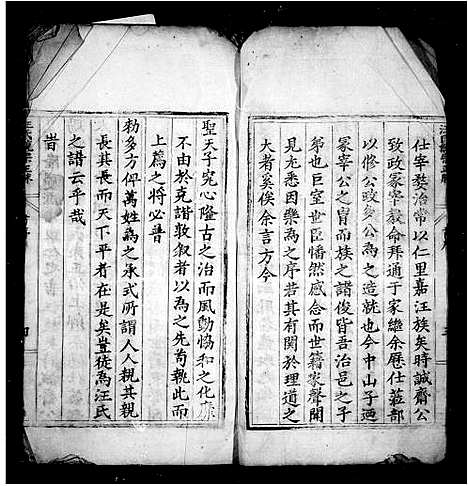 仕宰婺治常以仁里嘉汪族矣時誠齋公
致政冢宰嚴命拜通于家繼余歷仕藩部
以修公政多公為之造就也今中山子迺
冢宰公之冑而族之譜俊皆吾治邑之子
弟也巨室世臣慡然感念而世籍家聲聞
見尤悉因樂為之序若其有關於理道之
大者奚俟余言方今
聖天子究心隆古之治而風動恊和之化亦
不由於克諧敦叙者以為之先苟執此而
上為之將必普
勅多方俾萬姓為之承式所謂人人親其親
長其長而天下平者在是矣豈徒為汪氏
之譜云乎哉
旹